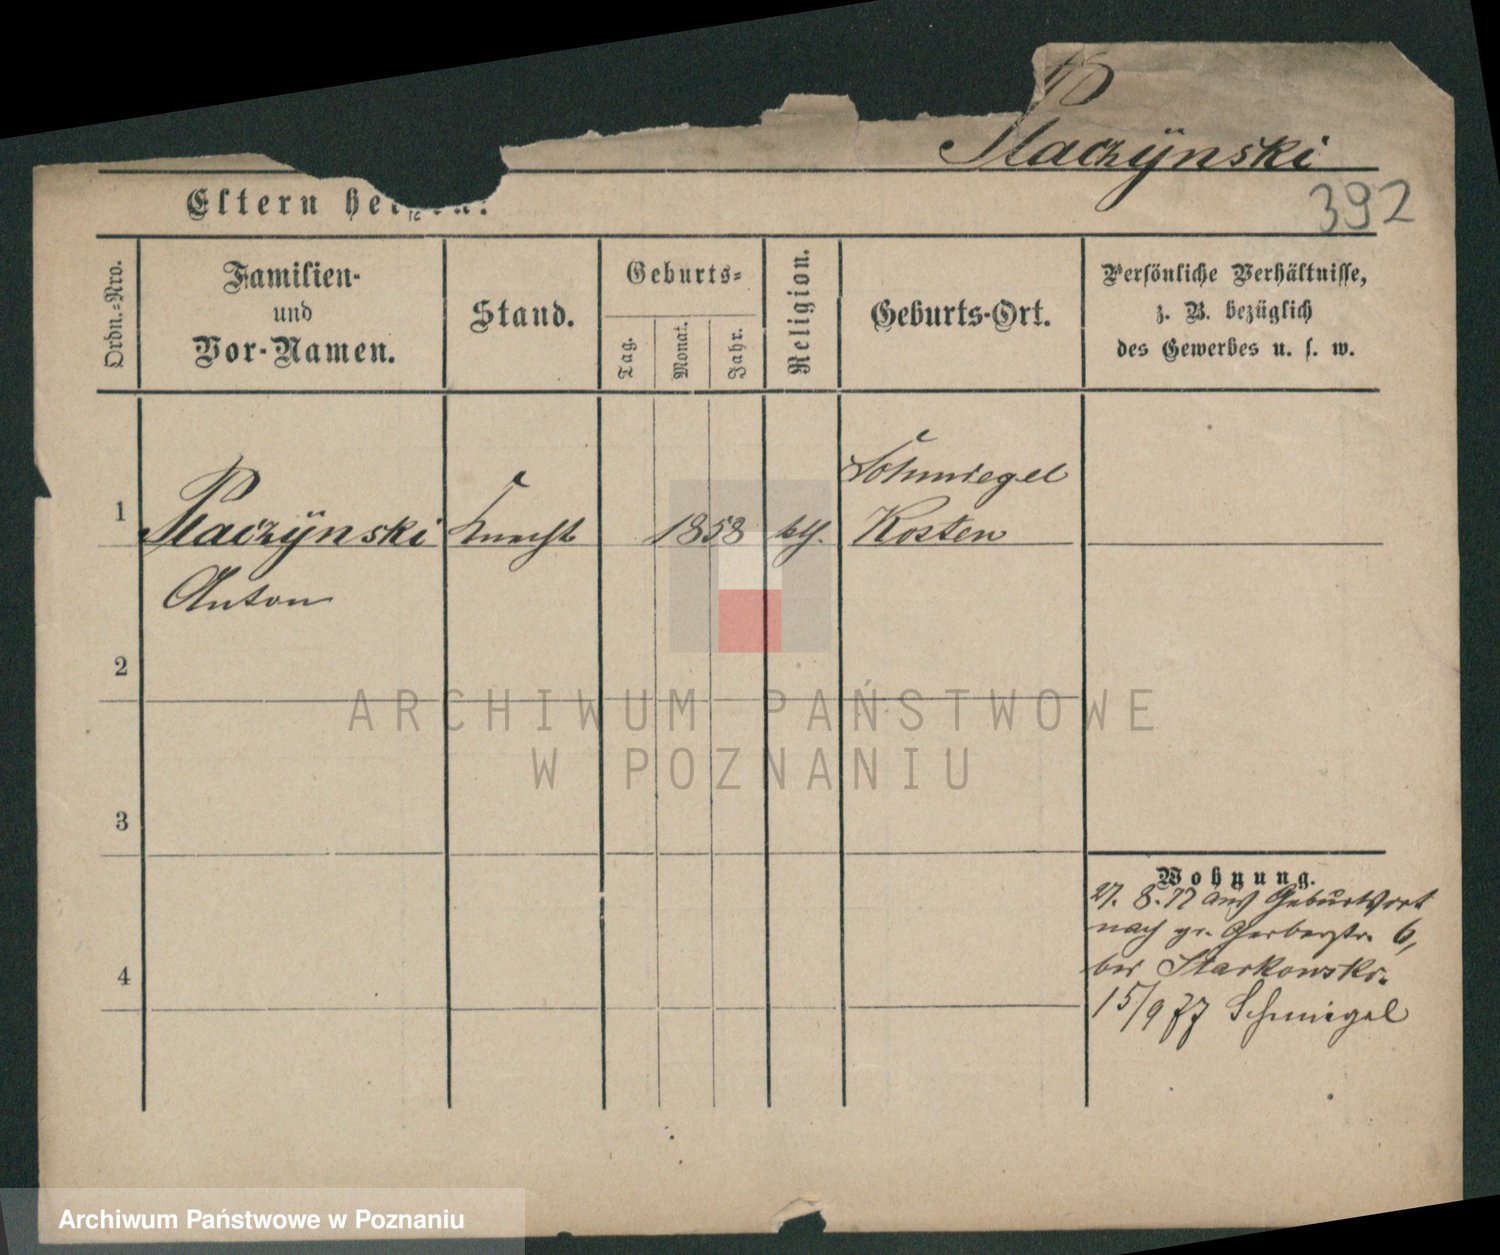 Placzÿnski
392
Eltern he
Ordn.-Nro.
Familien-
und
Vor-Namen.
Stand.
Geburts-
Tag.
Monat.
Jahr.
Religion.
Geburts-Ort.
Persönliche Verhältnisse,
z. B. bezüglich
des Gewerbes u. s. w.
1
Placzÿnski
Anton
Knecht
1858
kth.
Schmiegel
Kosten
2
3
4
Wohnung.
27. 8. 77 aus Geburtsort
nach gr. Gerberstr. 6,
bei Starkowski.
15/9 77 Schmigel
ARCHIWUM PAŃSTWOWE
W POZNANIU
Archiwum Państwowe w Poznaniu